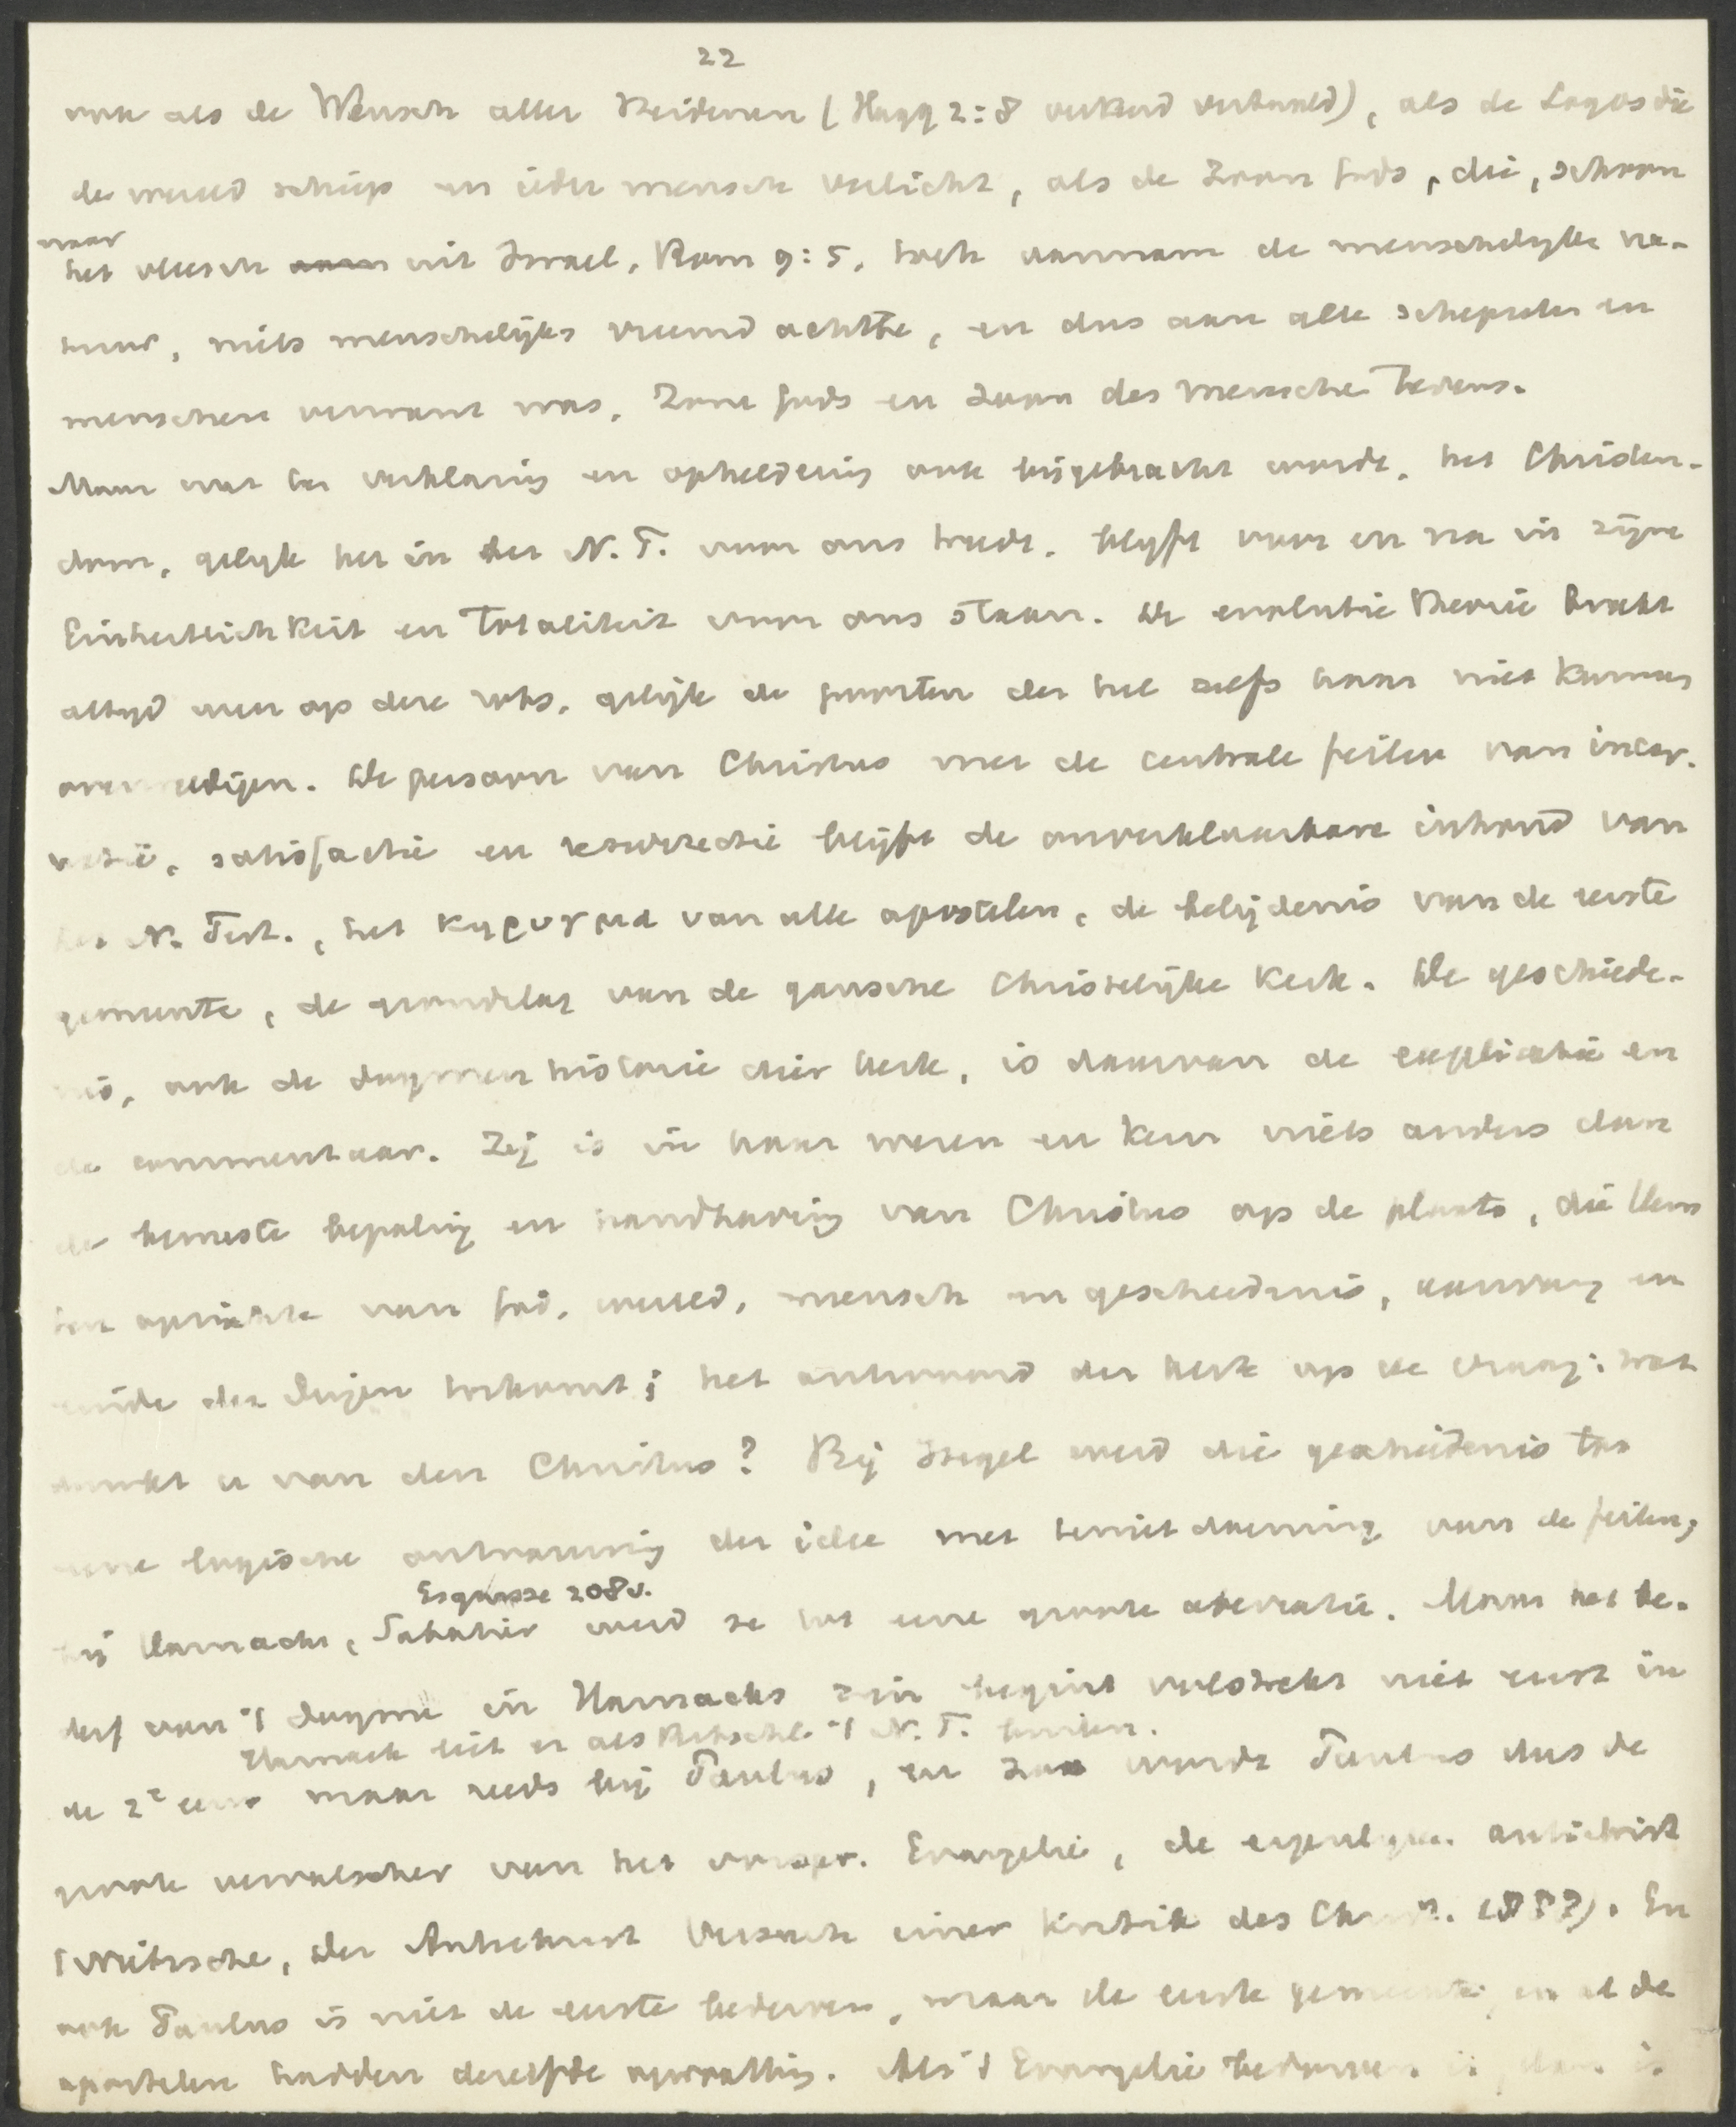 22
ook als de Wensch aller Heidenen (Hagg 2:8 verkeerd vertaald), als de Logos die
de wereld schiep en ieder mensch verlicht, als de Zoon Gods, die, schoon
naar
het vleesch aan uit Israel, Rom 9:5, toch aannam de menschelijke na-
tuur, niets menschelijks vreemd achtte, en dus aan alle schepselen en
menschen verwant was, Zone Gods en Zoon des Menschen tevens.
Maar wat ter verklaring en opheldering ook bijgebracht worde, het Christen-
dom, gelijk het in het N. T. voor ons treedt, blijft voor en na in zijne
Einheitlichkeit en Totaliteit voor ons staan. De evolutie theorie breekt
altijd weer op deze rots, gelijk de poorten der hel zelfs haar niet kunnen
overweldigen. De persoon van Christus met de centrale feiten van incar-
natie, satisfactie en resurrectie blijft de onverklaarbare inhoud van
het N. Test., het κηρυγμα van alle apostelen, de belijdenis van de eerste
gemeente, de grondslag van de gansche Christelijke Kerk. De geschiede-
nis, ook de dogmenhistorie dier kerk, is daarvan de explicatie en
de commentaar. Zij is in haar wezen en kern niets anders dan
de bewuste bepaling en handhaving van Christus op de plaats, die Hem
ten opzichte van God, wereld, mensch en geschiedenis, aanvang en
einde der dingen toekomt; het antwoord der kerk op de vraag: wat
dunkt u van den Christus? Bij Hegel werd die geschiedenis tot
eene logische ontvouwing der idee met tenietdoening van de feiten;
Esquisse 208v.
bij Harnack, Sabatier werd ze tot eene groote aberratie. Maar het be-
derf van 't dogma in Harnacks zin begint volstrekt niet eerst in
Harnack liet er als Ritschl 't N. T. buiten.
de 2e eeuw maar reeds bij Paulus, en zoo wordt Paulus dus de
groote vervalscher van het oorspr. Evangelie, de eigenlijke antichrist
(Nietzsche, Der Antichrist Versuch einer Kritik des Chr. En
ook Paulus is niet de eerste bederver, maar de eerste gemeente en al de
apostelen hadden dezelfde opvatting. Als 't Evangelie bedorven is, dan is